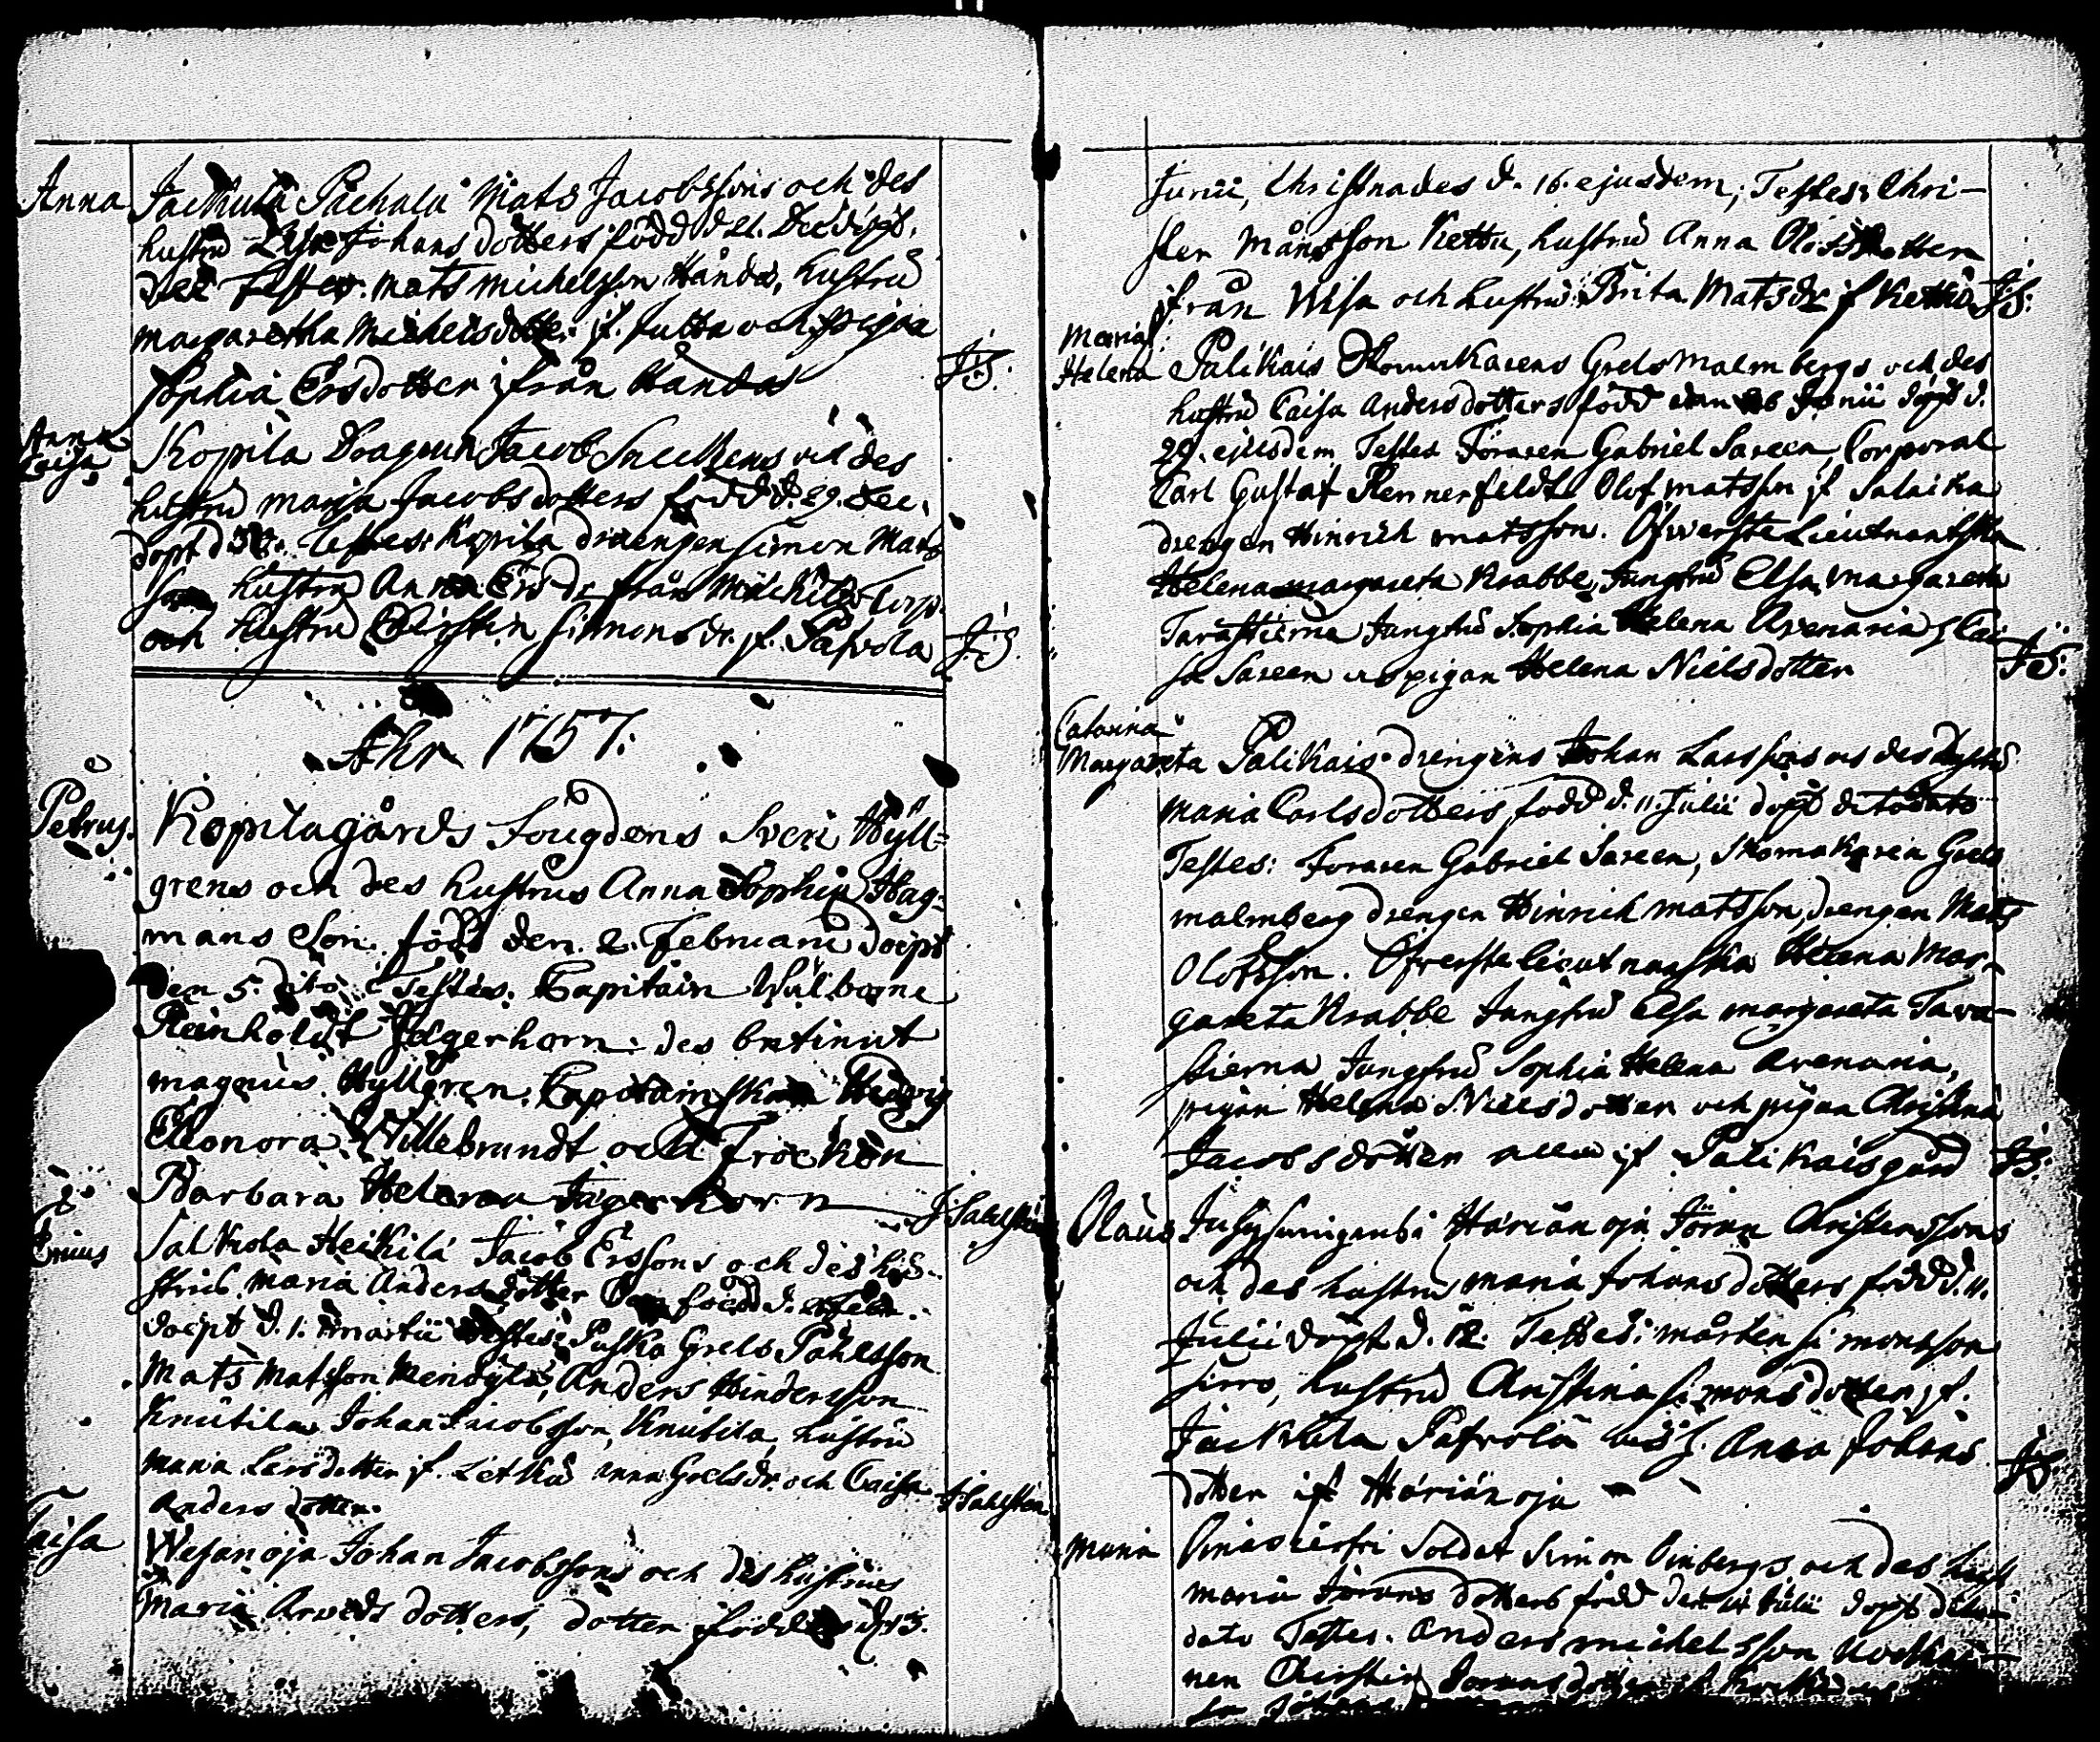 Anna
Jackula Påckala Mats Jacobssons och des
hustru Lisa Johans dotters född d 21. Dec döpt.
Testes. Mats Michelsson Handas, hustru
Margaretha Michelsdotter if. Jutta och pigan
Sophia Ersdotter ifrån Handas J:S:
Anna
Caisa
Kopila Dragoun Jacob Snickens och des
hustru Maria Jacobsdotters född d. 29. Dec.
döpt d 30. Testes: Kopila drängen Simon Mats
Son hustru Anna Ersdr från Torp.
och hustru Christin Simonsdr. if. Pafvola J:S
Ahr 1757.
Petrus.
Kopilagårds Fougdens Sven Hyll=
grens och des hustrus Anna Sophia Hag=
mans Son. född den. 2. Februarii döipt
den 5. dito. Testes. Capitain
Reinholdt Jägerhorn. des betient
magnus Hyllgren. Capitainskan Hedvig
Eleonora Willebrandt och Fröcken
Barbara Helena Jägerhorn J: Sahlsten
Ericus
Salkola Heikilä Jacob Erssons och des hu-
strus Maria Anders dotter Son född d.
doipt d. 1. martii Testes: Puska Grels Påhlsson
Mats Matsson Mendylä, Anders Hindersson
Knutila Johan Jacobsson, Knutila, hustru
Maria Larsdotter if. Letku Anna Grelsdr. och Caisa
Anders dotter. J: Sahlsten
Caisa
Wesanoja Johan Jacobssons och des hustrus
Maria Arveds dotters, dotter född d. 13.
Junii, Christnades d. 16. ejusdem; Testes: Chri-
ster Månsson Kettu, hustru Anna Olofsdotter
ifrån Wisa och hustru Brita Matsdr if Kettu J:S:
Maria
Helena
Palikais Skomakarens Grels Malmbergs och des
hustru Caisa Andersdotters född den 26 Junii döpt d.
29. ejusdem Testes Föraren Gabriel Sareen, Corporal
Carl Gustaf Rennerfeldt Olof Matsson if Salaika
drengen Hinrich Matsson. Öfwerste Lieutnantska
Helena Margareta Krabbe, Jungfru Elsa Margareta
Tavastierna Jungfru Sophia Helena Avenaria, Cai
sa Sareen och pigan Helena Nielsdotter J:S:
Catarina
Margareta
Palikais drengens Johan Larssons och des hustru
Maria Carlsdotters, född d. 11. Julii döpt dito dato
Testes: Foraren Gabriel Sareen, Skomakaren Grels
malmberg drengen Hinrich matsson, drengen Mats
Olofsson. Öfverste lieutnanska Helena Mar-
gareta Krabbe Jungfru Elsa margareta Tava-
stierna Jungfru Sophia Helena Avenaria,
pigan Helena Nielsdotter och pigan Christina
Jacobsdotter alla if Palikaisgård J:S:
Olaus
Hariänoja Jöran Christerssons
och des hustru Maria Johansdotters född d. 11.
Julii döpt d. 12. Testes: mårten Simonsson
Sirro, hustru Christina Simonsdotter if.
Jackula Pafvola och h. Anna Johans
dotter if Hariänoja J:S:
Maria
Soldat Simon Vinbergs och des hust
maria Jörans dotters född den Julii döpt dito
dato Testes. Anders michelsson
nen Christin Joransdotter